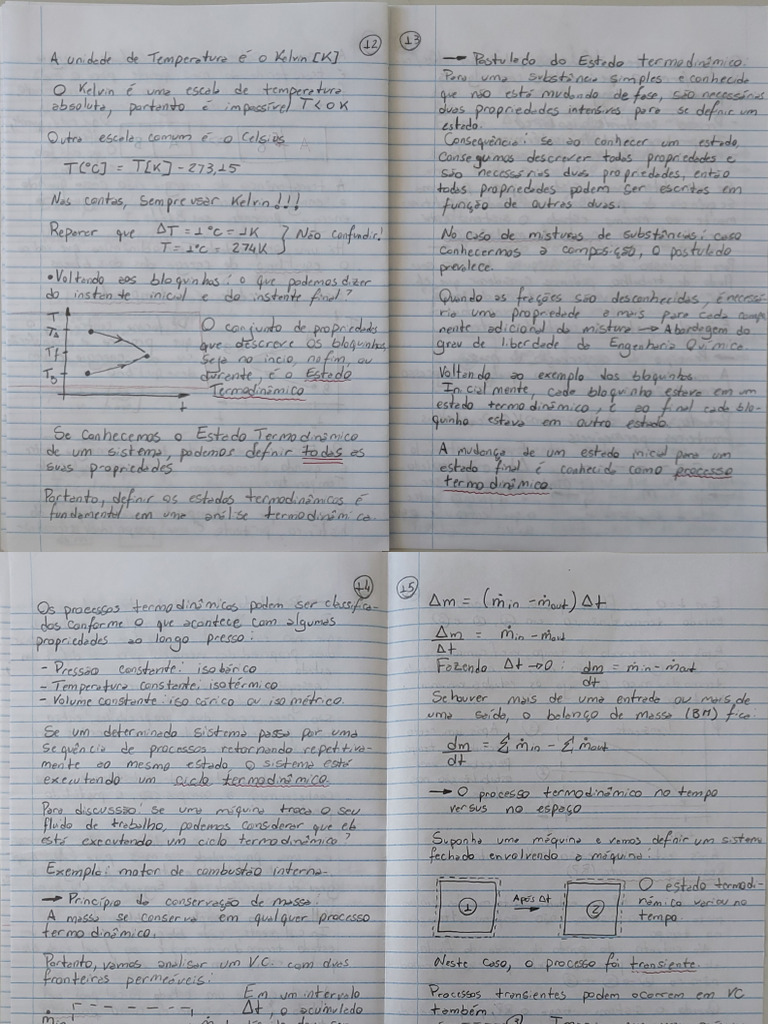 12
A unidade de Temperatura é o Kelvin [K]
O Kelvin é uma escala de temperatura
absoluta, portanto é impossível T < 0 K
Outra escala comum é o Celsius
T[°C] = T[K] - 273,15
Nas contas, sempre usar Kelvin!!!
Reparar que ΔT = 1°C = 1K
T = 1°C = 274K } Não confundir!
• Voltando aos bloquinhos: o que podemos dizer
do instante inicial e do instante final?
T
TA
Tf
TB
t
O conjunto de propriedades
que descreve os bloquinhos,
seja no início, no fim, ou
durante, é o Estado
Termodinâmico
Se conhecemos o Estado Termodinâmico
de um sistema, podemos definir todas as
suas propriedades
Portanto, definir os estados termodinâmicos é
fundamental em uma análise termodinâmica.
13
→ Postulado do Estado termodinâmico.
Para uma substância simples e conhecida
que não está mudando de fase, são necessárias
duas propriedades intensivas para se definir um
estado.
Consequência: se ao conhecer um estado,
conseguimos descrever todas propriedades e
são necessárias duas propriedades, então
todas propriedades podem ser escritas em
função de outras duas.
No caso de misturas de substâncias: caso
conhecermos a composição, o postulado
prevalece.
Quando as frações são desconhecidas, é necessá-
rio uma propriedade a mais para cada compo-
nente adicional da mistura → Abordagem do
grau de liberdade da Engenharia Química.
Voltando ao exemplo dos bloquinhos.
Inicialmente, cada bloquinho estava em um
estado termodinâmico, e ao final cada blo-
quinho estava em outro estado.
A mudança de um estado inicial para um
estado final é conhecida como processo
termodinâmico.
14
Os processos termodinâmicos podem ser classifica-
dos conforme o que acontece com algumas
propriedades ao longo presso:
- Pressão constante: isobárico
- Temperatura constante: isotérmico
- Volume constante: isocórico ou isométrico.
Se um determinado sistema passa por uma
sequência de processos retornando repetitiva-
mente ao mesmo estado, o sistema está
executando um ciclo termodinâmico.
Para discussão: se uma máquina troca o seu
fluido de trabalho, podemos considerar que ela
está executando um ciclo termodinâmico?
Exemplo: motor de combustão interna.
→ Princípio da conservação de massa:
A massa se conserva em qualquer processo
termodinâmico.
Portanto, vamos analisar um V.C. com duas
fronteiras permeáveis:
Em um intervalo
Δt, o acumulado
15
Δm = (ṁin - ṁout) Δt
Δm/Δt = ṁin - ṁout
Fazendo Δt → 0: dm/dt = ṁin - ṁout
Se houver mais de uma entrada ou mais de
uma saída, o balanço de massa (BM) fica:
dm/dt = Σ ṁin - Σ ṁout
→ O processo termodinâmico no tempo
versus no espaço
Suponha uma máquina e vamos definir um sistema
fechado envolvendo a máquina:
1 Após Δt 2
O estado termodi-
nâmico variou no
tempo
Neste caso, o processo foi transiente.
Processos transientes podem ocorrem em VC
também: